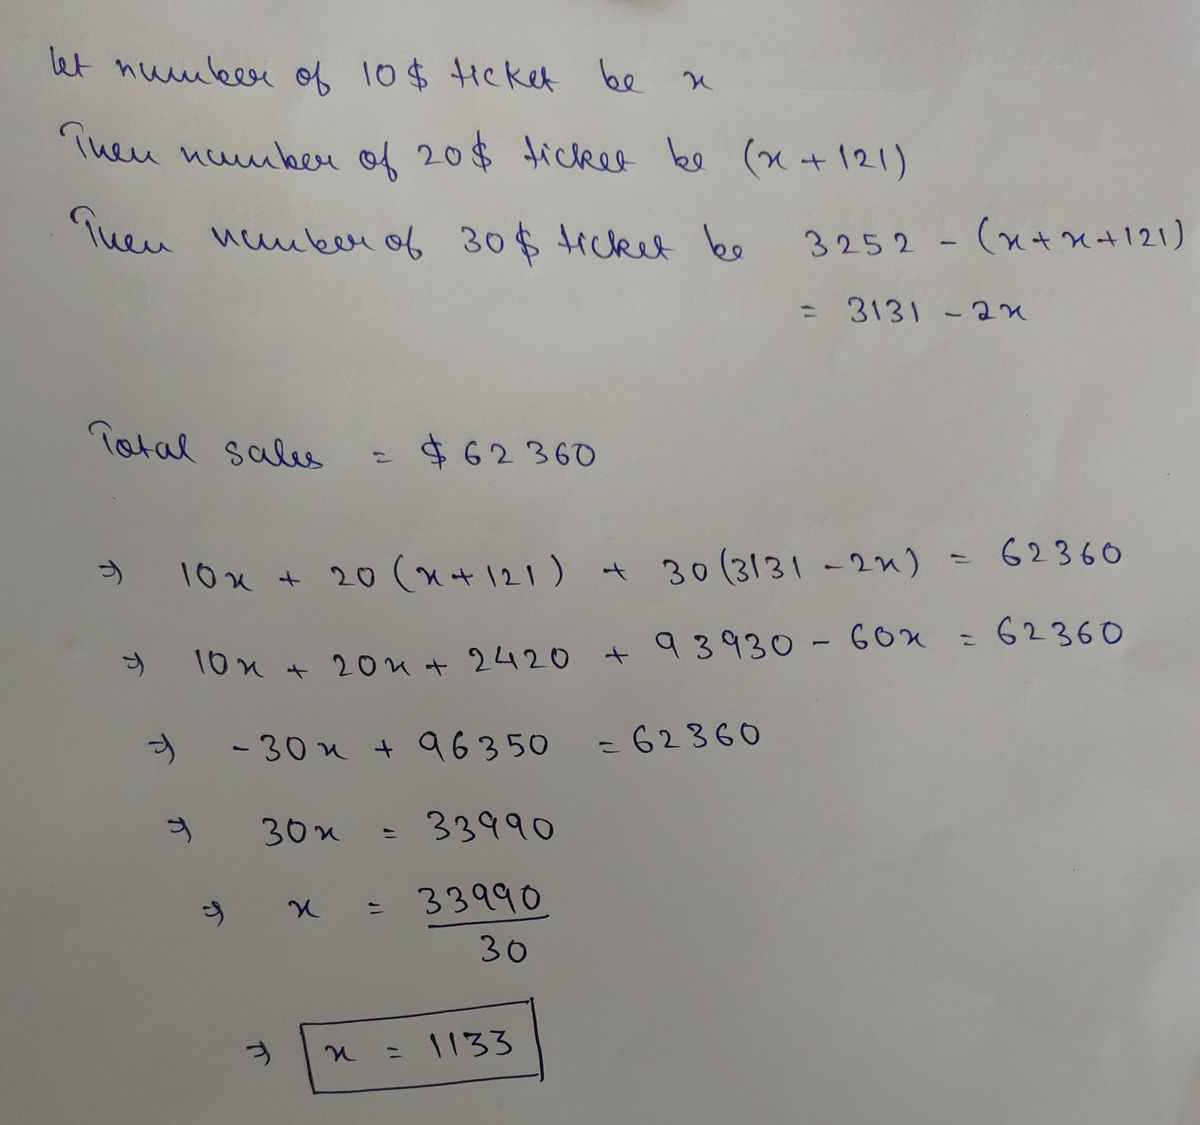 let number of 10$ ticket be x
Then number of 20$ ticket be (x + 121)
Then number of 30$ ticket be 3252 - (x + x + 121)
= 3131 - 2x
Total sales = $ 62360
⇒ 10x + 20(x + 121) + 30(3131 - 2x) = 62360
⇒ 10x + 20x + 2420 + 93930 - 60x = 62360
⇒ -30x + 96350 = 62360
⇒ 30x = 33990
⇒ x = 33990
30
⇒ x = 1133